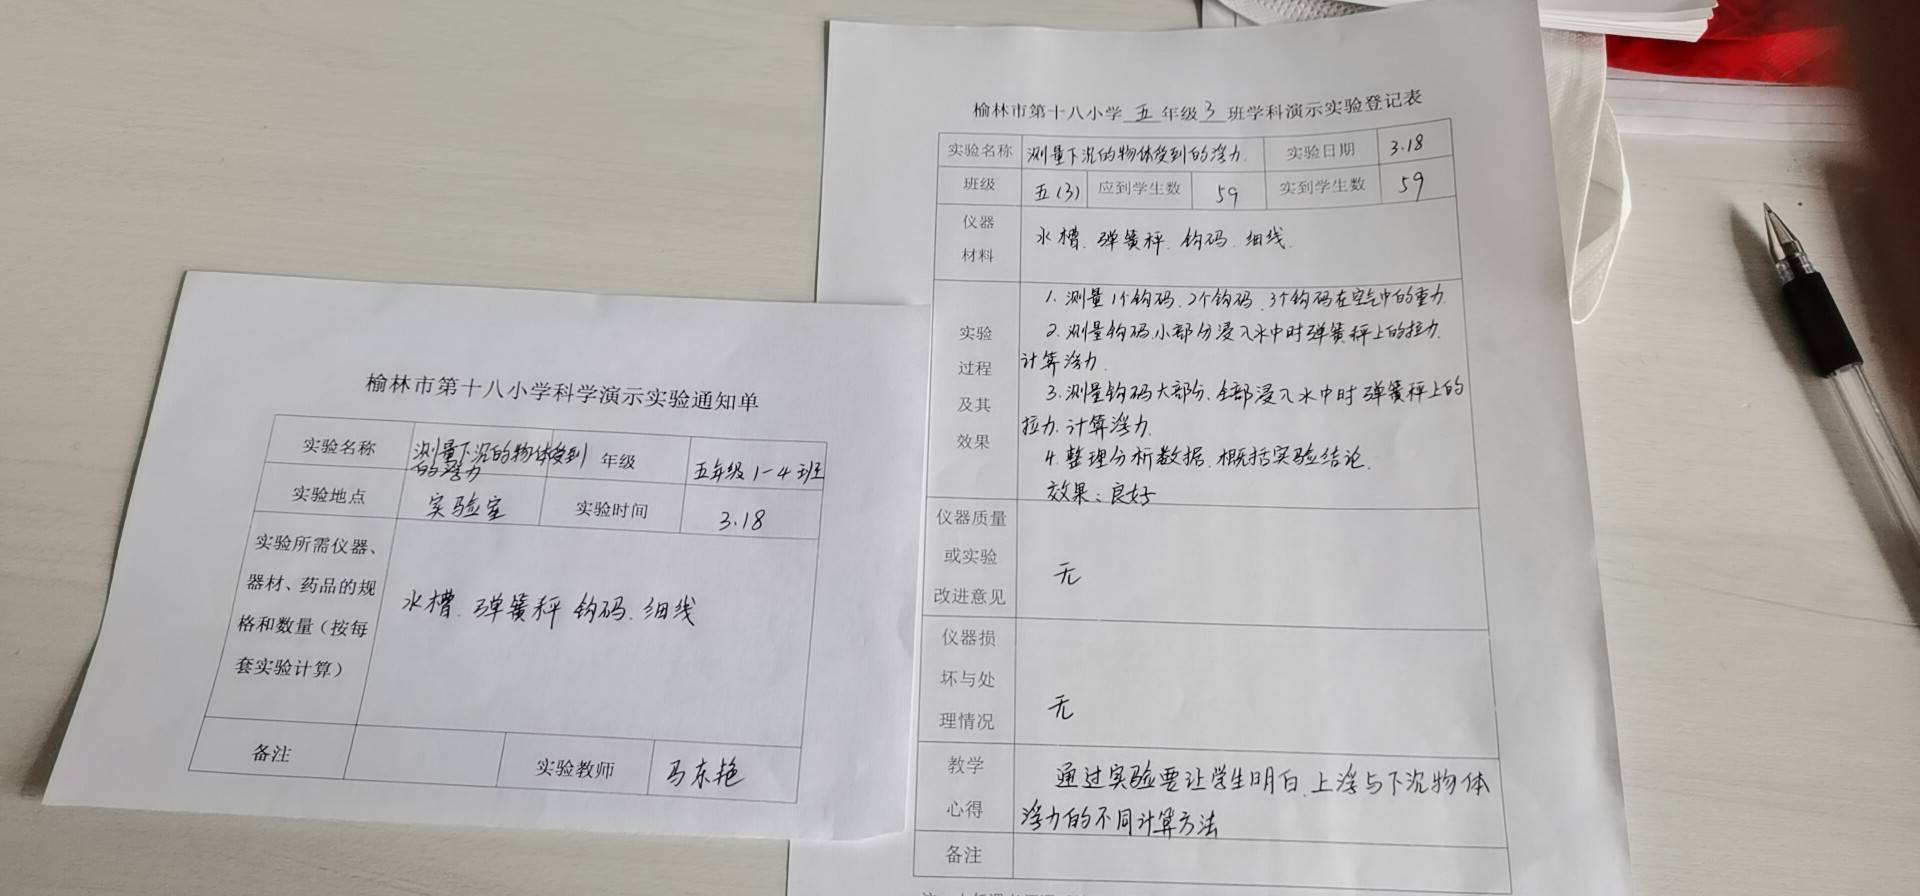 榆林市第十八小学科学演示实验通知单
实验名称 测量下沉的物体受到的浮力 年级 五年级1-4班
实验地点 实验室 实验时间 3.18
实验所需仪器、
器材、药品的规
格和数量（按每
套实验计算）
水槽.弹簧秤 钩码.细线
备注 实验教师 马东艳
榆林市第十八小学五年级3班学科演示实验登记表
实验名称 测量下沉的物体受到的浮力. 实验日期 3.18
班级 五(3) 应到学生数 59 实到学生数 59
仪器
材料
水槽.弹簧秤.钩码.细线.
实验
过程
及其
效果
1.测量1个钩码、2个钩码、3个钩码在空气中的重力.
2.测量钩码小部分浸入水中时弹簧秤上的拉力.
计算浮力.
3.测量钩码大部分、全部浸入水中时弹簧秤上的
拉力.计算浮力.
4.整理分析数据.概括实验结论.
效果：良好
仪器质量
或实验
改进意见
无
仪器损
坏与处
理情况
无
教学
心得
通过实验要让学生明白.上浮与下沉物体
浮力的不同计算方法
备注